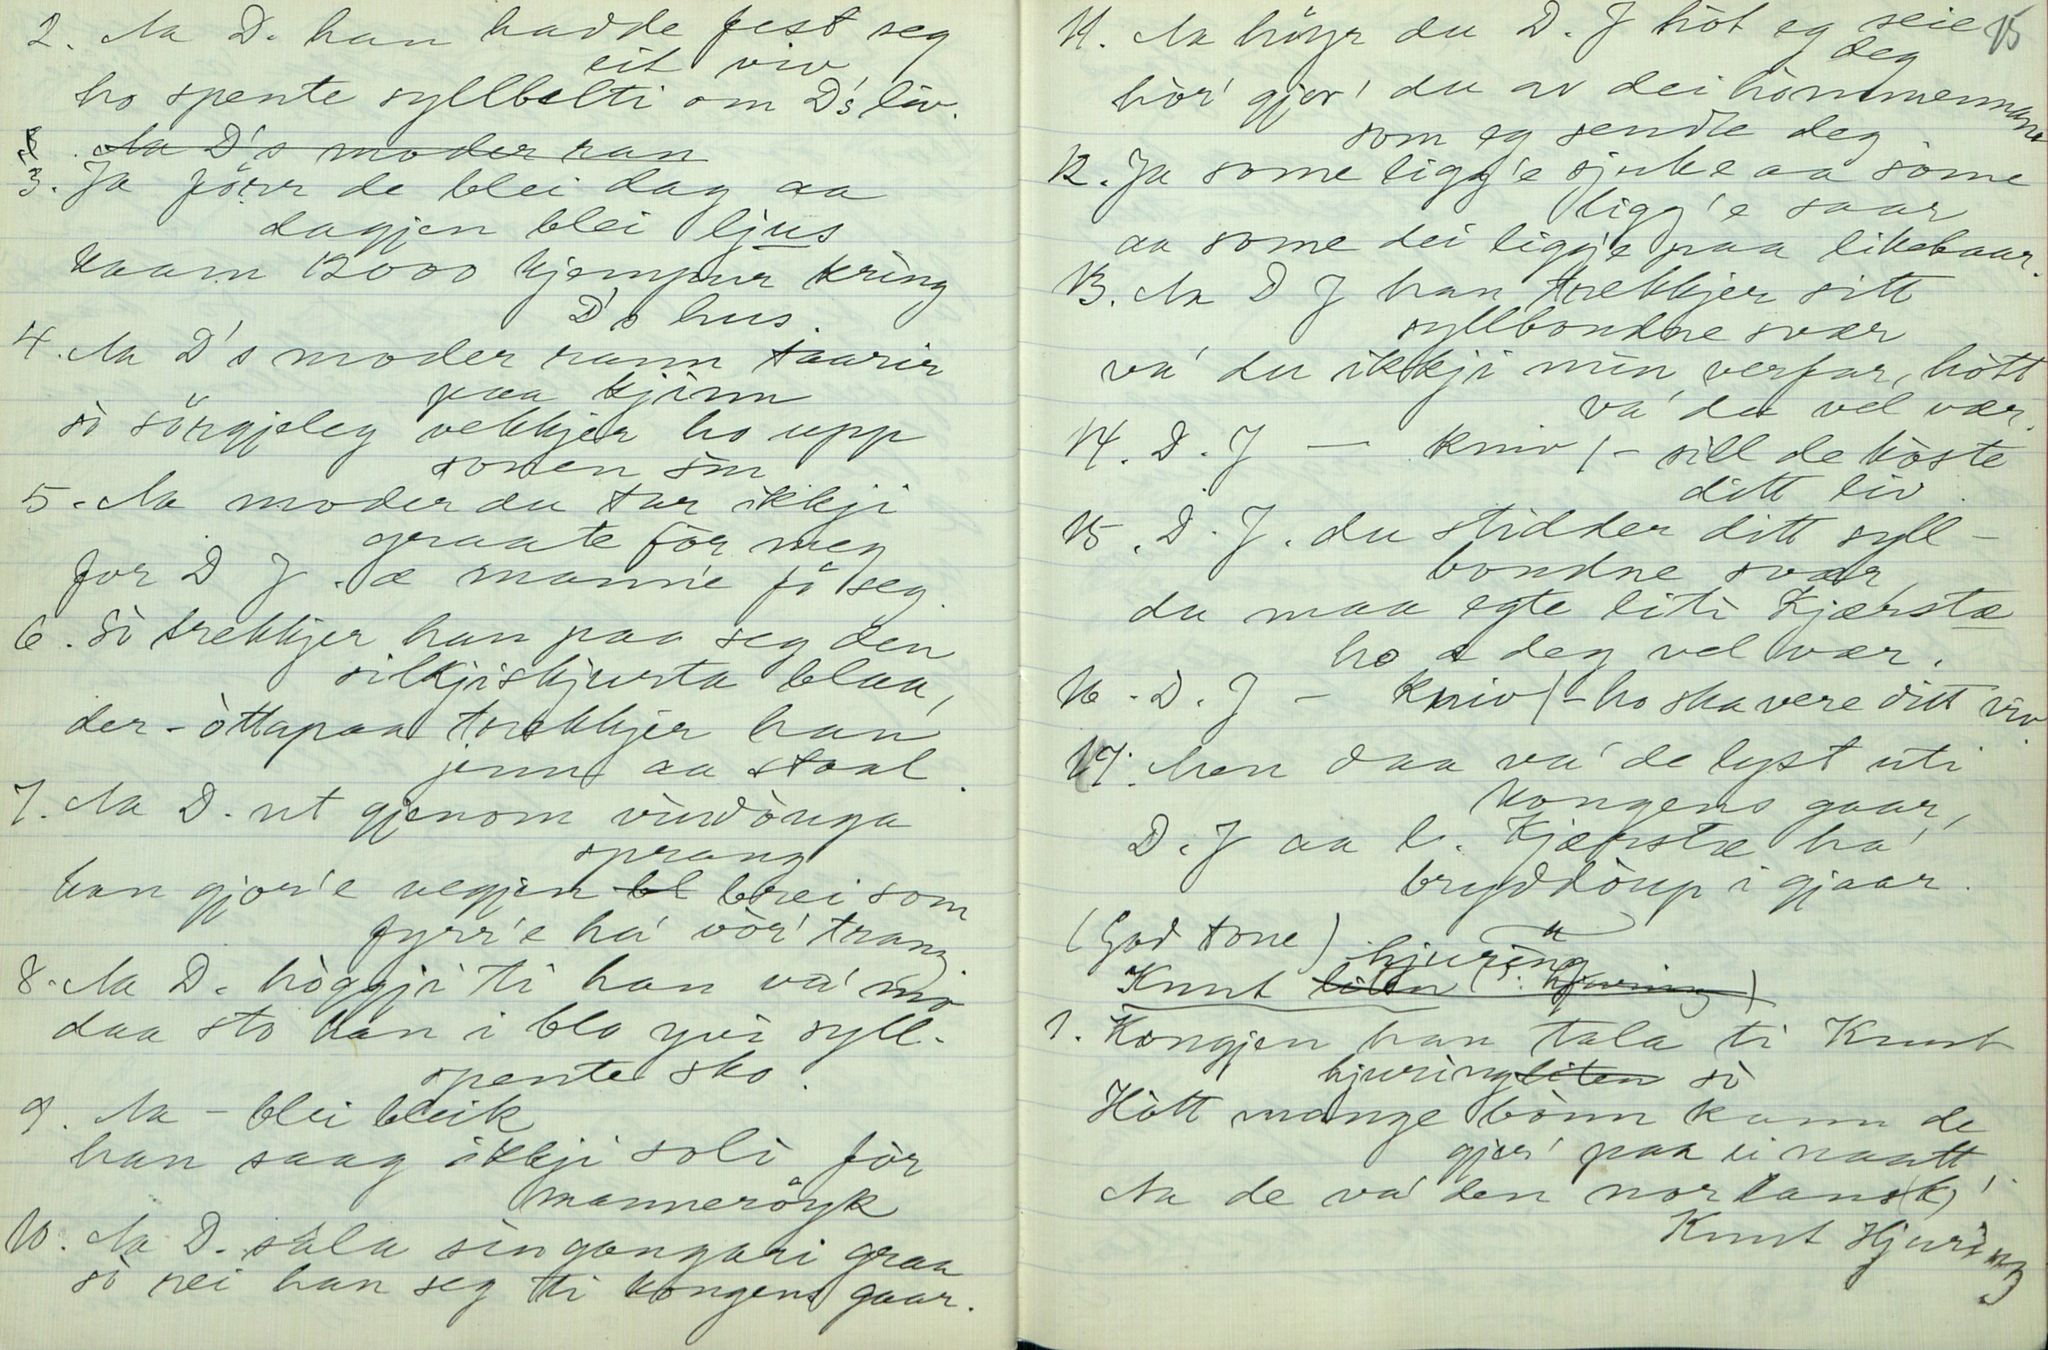 2. Aa D. han hadde fest seg
eit viv
ho spente syllbelti om D's liv.
Aa D's moder ran
3. Ja förr de blei dag aa
dagjen blei ljus
kaam 12000 kjempur kring
D's hus.
4. Aa D's moder rann taarir
paa kjinn
so sörgjeleg vekkjer ho upp
sonen sin
5. Aa moder du tar ikkji
graate för meg
for D J. æ mann'e fö seg.
6. So trekkjer han paa seg den
silkjiskjurta blaa,
der-òttapaa trekkjer han
jenn aa staal.
7. Aa D. ut gjenom vindòuga
sprang
han gjor'e vegjen bl brei som
fyrr'e ha' vòr' trang.
8. Aa D. hòggji ti han va' mo
daa sto han i blo yvi syll-
spente sko.
9. Aa - blei bleik
han saag ikkji soli för
manneröyk
10. Aa D. sala sin gangari graa
so rei han seg ti kongens gaar.
15
11. Aa höyr du D. J hòt eg seie
deg
hòr' gjor' du av dei hòmmenmann
som eg sendte deg
12. Ja some ligg'e sjuke aa some
ligg'e saar
aa some dei ligg'e paa likebaar.
13. Aa D J han trekkjer sitt
syllbondne svær
va' du ikkji min verfar, hòtt
va' du vel vær.
14. D. J — kniv / - sill de kòste
ditt liv.
15. D. J. du stidder ditt syll-
bondne svær,
du maa egte liti Kjærstæ
ho æ deg vel vær.
16. D. J - kniv / - ho ska vere ditt viv.
17. Men daa va' de lyst uti
kongens gaar,
D. J aa l. Kjærstæ ha'
bryddòup i gjaar.
(God tone) hjuring
Knut liten (s. hjuring)
1. Kongjen han tala ti Knut
hjuring liten so
Hòtt mange bònn kann de
gjer' paa ei naatt
Aa de va' den norlans(k)'
Knut Hjuring.